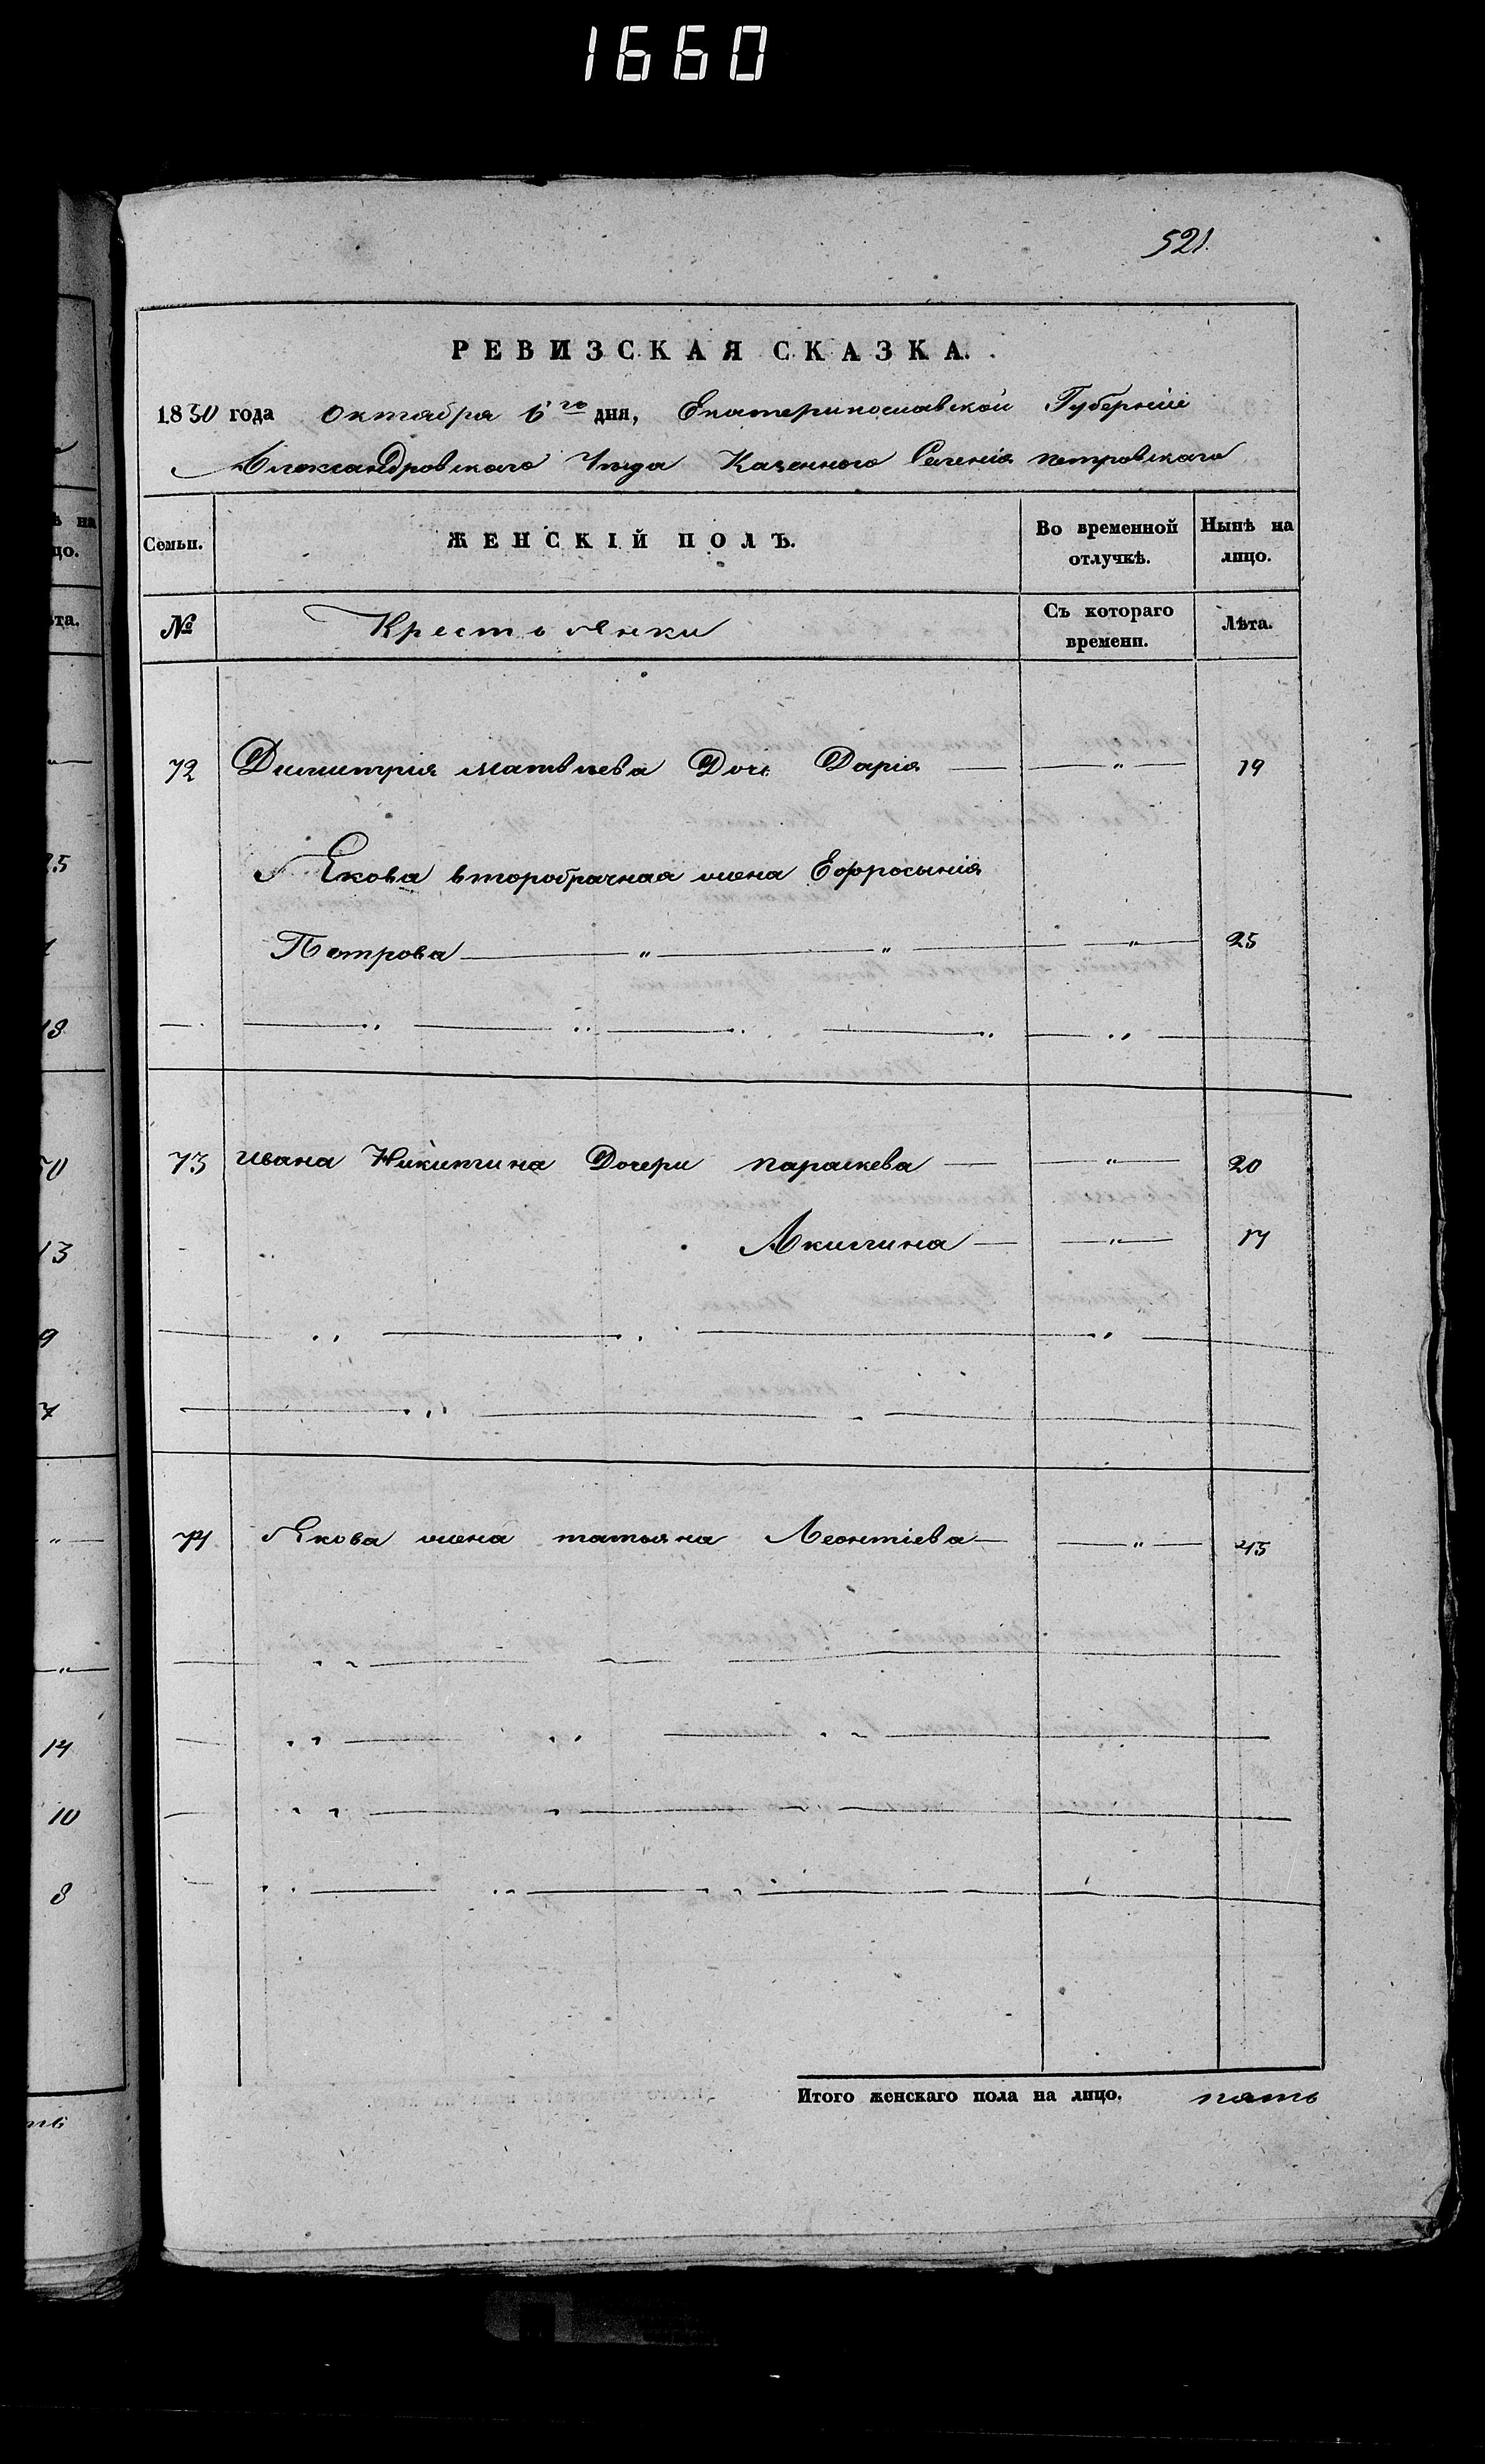 1660
521.
РЕВИЗСКАЯ СКАЗКА.
1850 года Октября 6го дня, Екатеринославской Губерніи
Александровского Уѣзда Казенного Селенія петровскаго
Семьи. ЖЕНСКІЙ ПОЛЪ. Во временной отлучкѣ. Нынѣ на лицо.
№ Крестьянки Съ котораго времени. Лѣта.
72 Димитрія матвѣева Дочь Дарія — — " — 19
Якова второбрачная жена Ефросынія
Петрова — " — " — — " — 25
73 ивана Никитина Дочери параскева — — " — 20
Акилина — — " — 17
74 Якова жена татьяна Леонтіева — — " — 45
Итого женскаго пола на лицо. пять
ѣ на
цо.
та.
25
18
50
13
9
7
14
10
8
ть